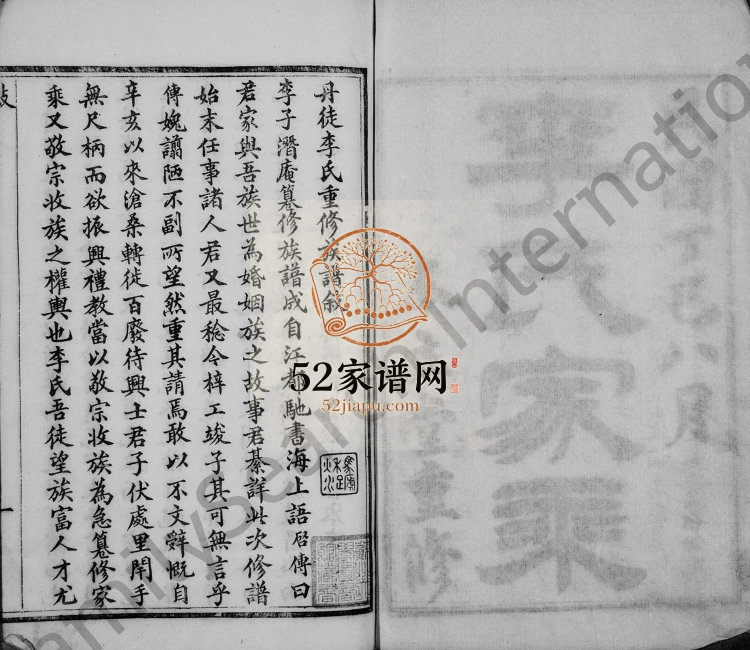 丹徒李氏重修族譜敘
李子潛庵纂修族譜成自江都馳書海上語启傳曰
君家與吾族世為婚姻族之故事君綦詳此次修譜
始末任事諸人君又最稔今梓工竣子其可無言乎
傳媿謭陋不副所望然重其請焉敢以不文辭慨自
辛亥以來滄桑轉徙百廢待興士君子伏處里閈手
無尺柄而欲振興禮教當以敬宗收族為急纂修家
乘又敬宗收族之權輿也李氏吾徒望族富人才尤
一
李氏家乘
八月
堂重修
52家谱网
52jiapu.com
FamilySearch International